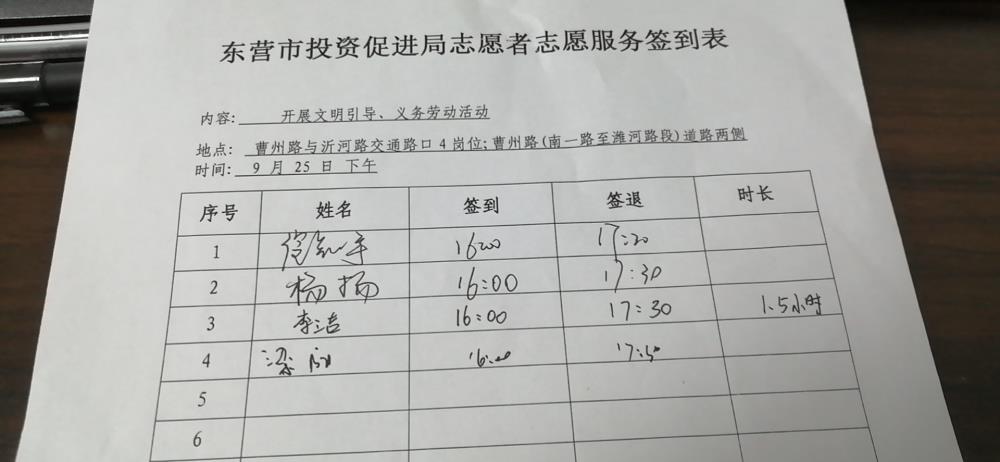 东营市投资促进局志愿者志愿服务签到表
内容: 开展文明引导、义务劳动活动
地点: 曹州路与沂河路交通路口4岗位;曹州路(南一路至潍河路段)道路两侧
时间: 9月25日下午
序号 姓名 签到 签退 时长
1 1600 17:20
2 杨扬 16:00 17:30
3 李洁 16:00 17:30 1.5小时
4 梁 16:00
5
6